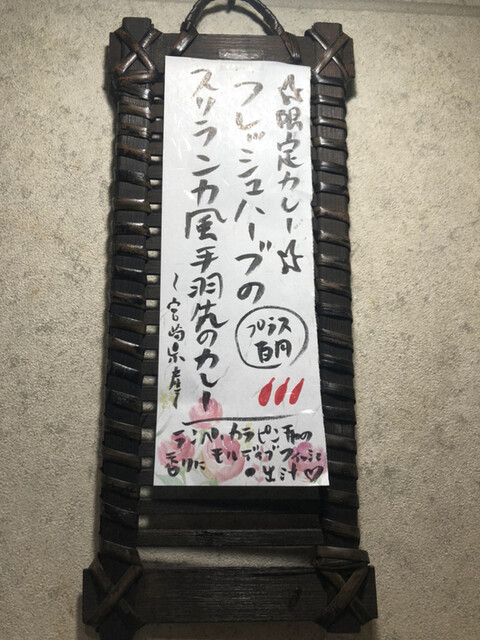 ☆限定カレー☆
フレッシュハーブの
プラス
百円
スリランカ風手羽先のカレー
~宮崎県産~
ランペ・カラピンチの
香りに モルディブフィッシュ
出汁♡